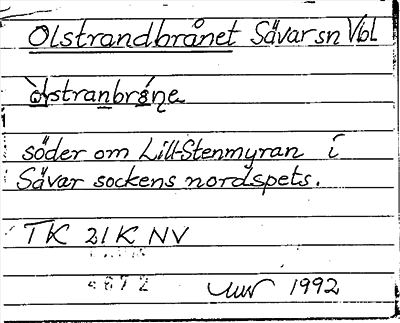 Olstrandbrånet Sävar sn Vbl
söder om Lill-Stenmyran i
Sävar sockens nordspets.
TK 21K NV
4672
1992